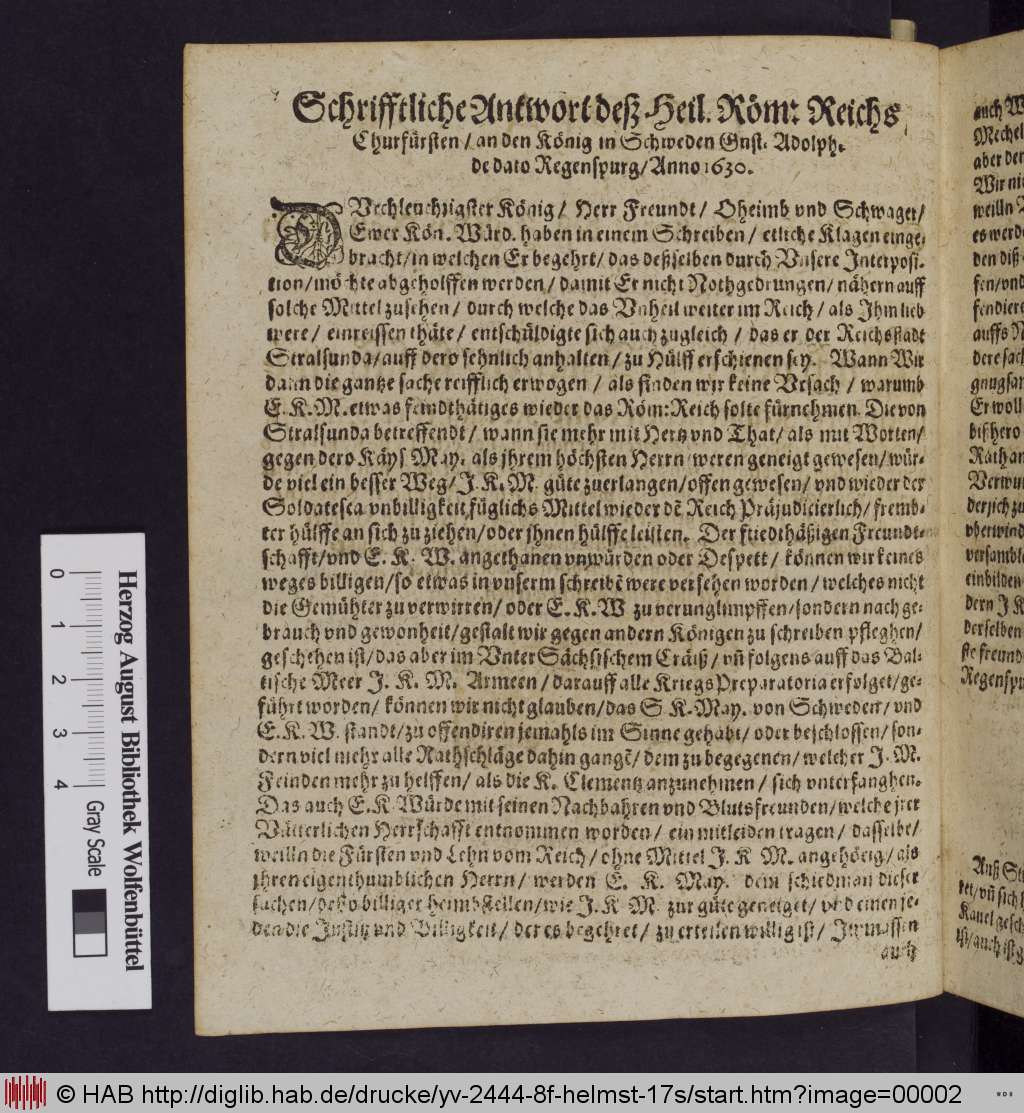 Schrifftliche Antwort deß Heil. Röm: Reichs
Churfürsten / an den König in Schweden Gust. Adolph.
de dato Regenspurg / Anno 1630.
DVrchleuchtigster König / Herr Freundt / Oheimb vnd Schwager /
Ewer Kön. Würd. haben in einem Schreiben / etliche Klagen einge-
bracht / in welchen Er begehrt / das deßselben durch Vnsere Interposi-
tion / möchte abgeholffen werden / damit Er nicht Nothgedrungen / nähern auff
solche Mittel zusehen / durch welche das Vnheil weiter im Reich / als Ihm lieb
were / einreissen thäte / entschüldigte sich auch zugleich / das er der Reichsstadt
Stralsunda / auff dero sehnlich anhalten / zu Hülff erschienen sey. Wann Wir
dann die gantze sache reifflich erwogen / als finden wir keine Vrsach / warumb
E. K. M. etwas feindthätiges wieder das Röm: Reich solte fürnehmen. Die von
Stralsunda betreffendt / wann sie mehr mit Hertz vnd That / als mit Worten /
gegen dero Käys May. als jhrem höchsten Herrn weren geneigt gewesen / wür-
de viel ein besser Weg / J. K. M. güte zuerlangen / offen gewesen / vnd wieder der
Soldatesca vnbilligkeit füglichs Mittel wieder dē Reich Präjudicierlich / fremb-
ter hülffe an sich zu ziehen / oder jhnen hülffe leisten. Der friedthäßigen Freundt-
schafft / vnd E. K. W. angethanen vnwürden oder Despett / können wir keines
weges billigen / so etwas in vnserm schreibē were versehen worden / welches nicht
die Gemühter zu verwirren / oder E. K. W zu verunglimpffen / sondern nach ge-
brauch vnd gewonheit / gestalt wir gegen andern Königen zu schreiben pfleghen /
geschehen ist / das aber im Vnter Sächsischem Cräiß / vñ folgens auff das Bal-
tische Meer J. K. M. Armeen / darauff alle Kriegs Præparatoria erfolget / ge-
führt worden / können wir nicht glauben / das S K. May. von Schweden / vnd
E. K. W. standt / zu offendiren jemahls im Sinne gehabt / oder beschlossen / son-
dern viel mehr alle Rathschläge dahin gangē / dem zu begegenen / welcher J. M.
Feinden mehr zu helffen / als die K. Clementz anzunehmen / sich vnterfanghen.
Das auch E. K. Würde mit seinen Nachbahren vnd Blutsfreunden / welche jrer
Vätterlichen Herrschafft entnommen worden / ein mitleiden tragen / dasselbe /
weiln die Fürsten vnd Lehn vom Reich / ohne Mittel J. K M. angehörig / als
jhren eigenthumblichen Herrn / werden E. K. May. dem schiedman dieser
sachen / desto billiger heimbstellen / wie J. K M. zur güte geneiget / vnd einen je-
den die Justitz vnd Billigkeit / der es begehret / zu erteilen willig ist / Jnmassen
auch
auch
Mechel
aber der
Wir nic
weilln
es werd
den diß
fen / vnd
fendiere
auffs N
dere sach
gnugsam
Er wolle
bißhero
Rath an
Verwu
der sich zu
vberwind
versamble
einbilden
dern J K
derselben
ste freund
Regenspu
Auß
ket / vñ sich
geschi
ist / auch ist
Herzog August Bibliothek Wolfenbüttel
0 1 2 3 4
Gray Scale
© HAB http://diglib.hab.de/drucke/yv-2444-8f-helmst-17s/start.htm?image=00002